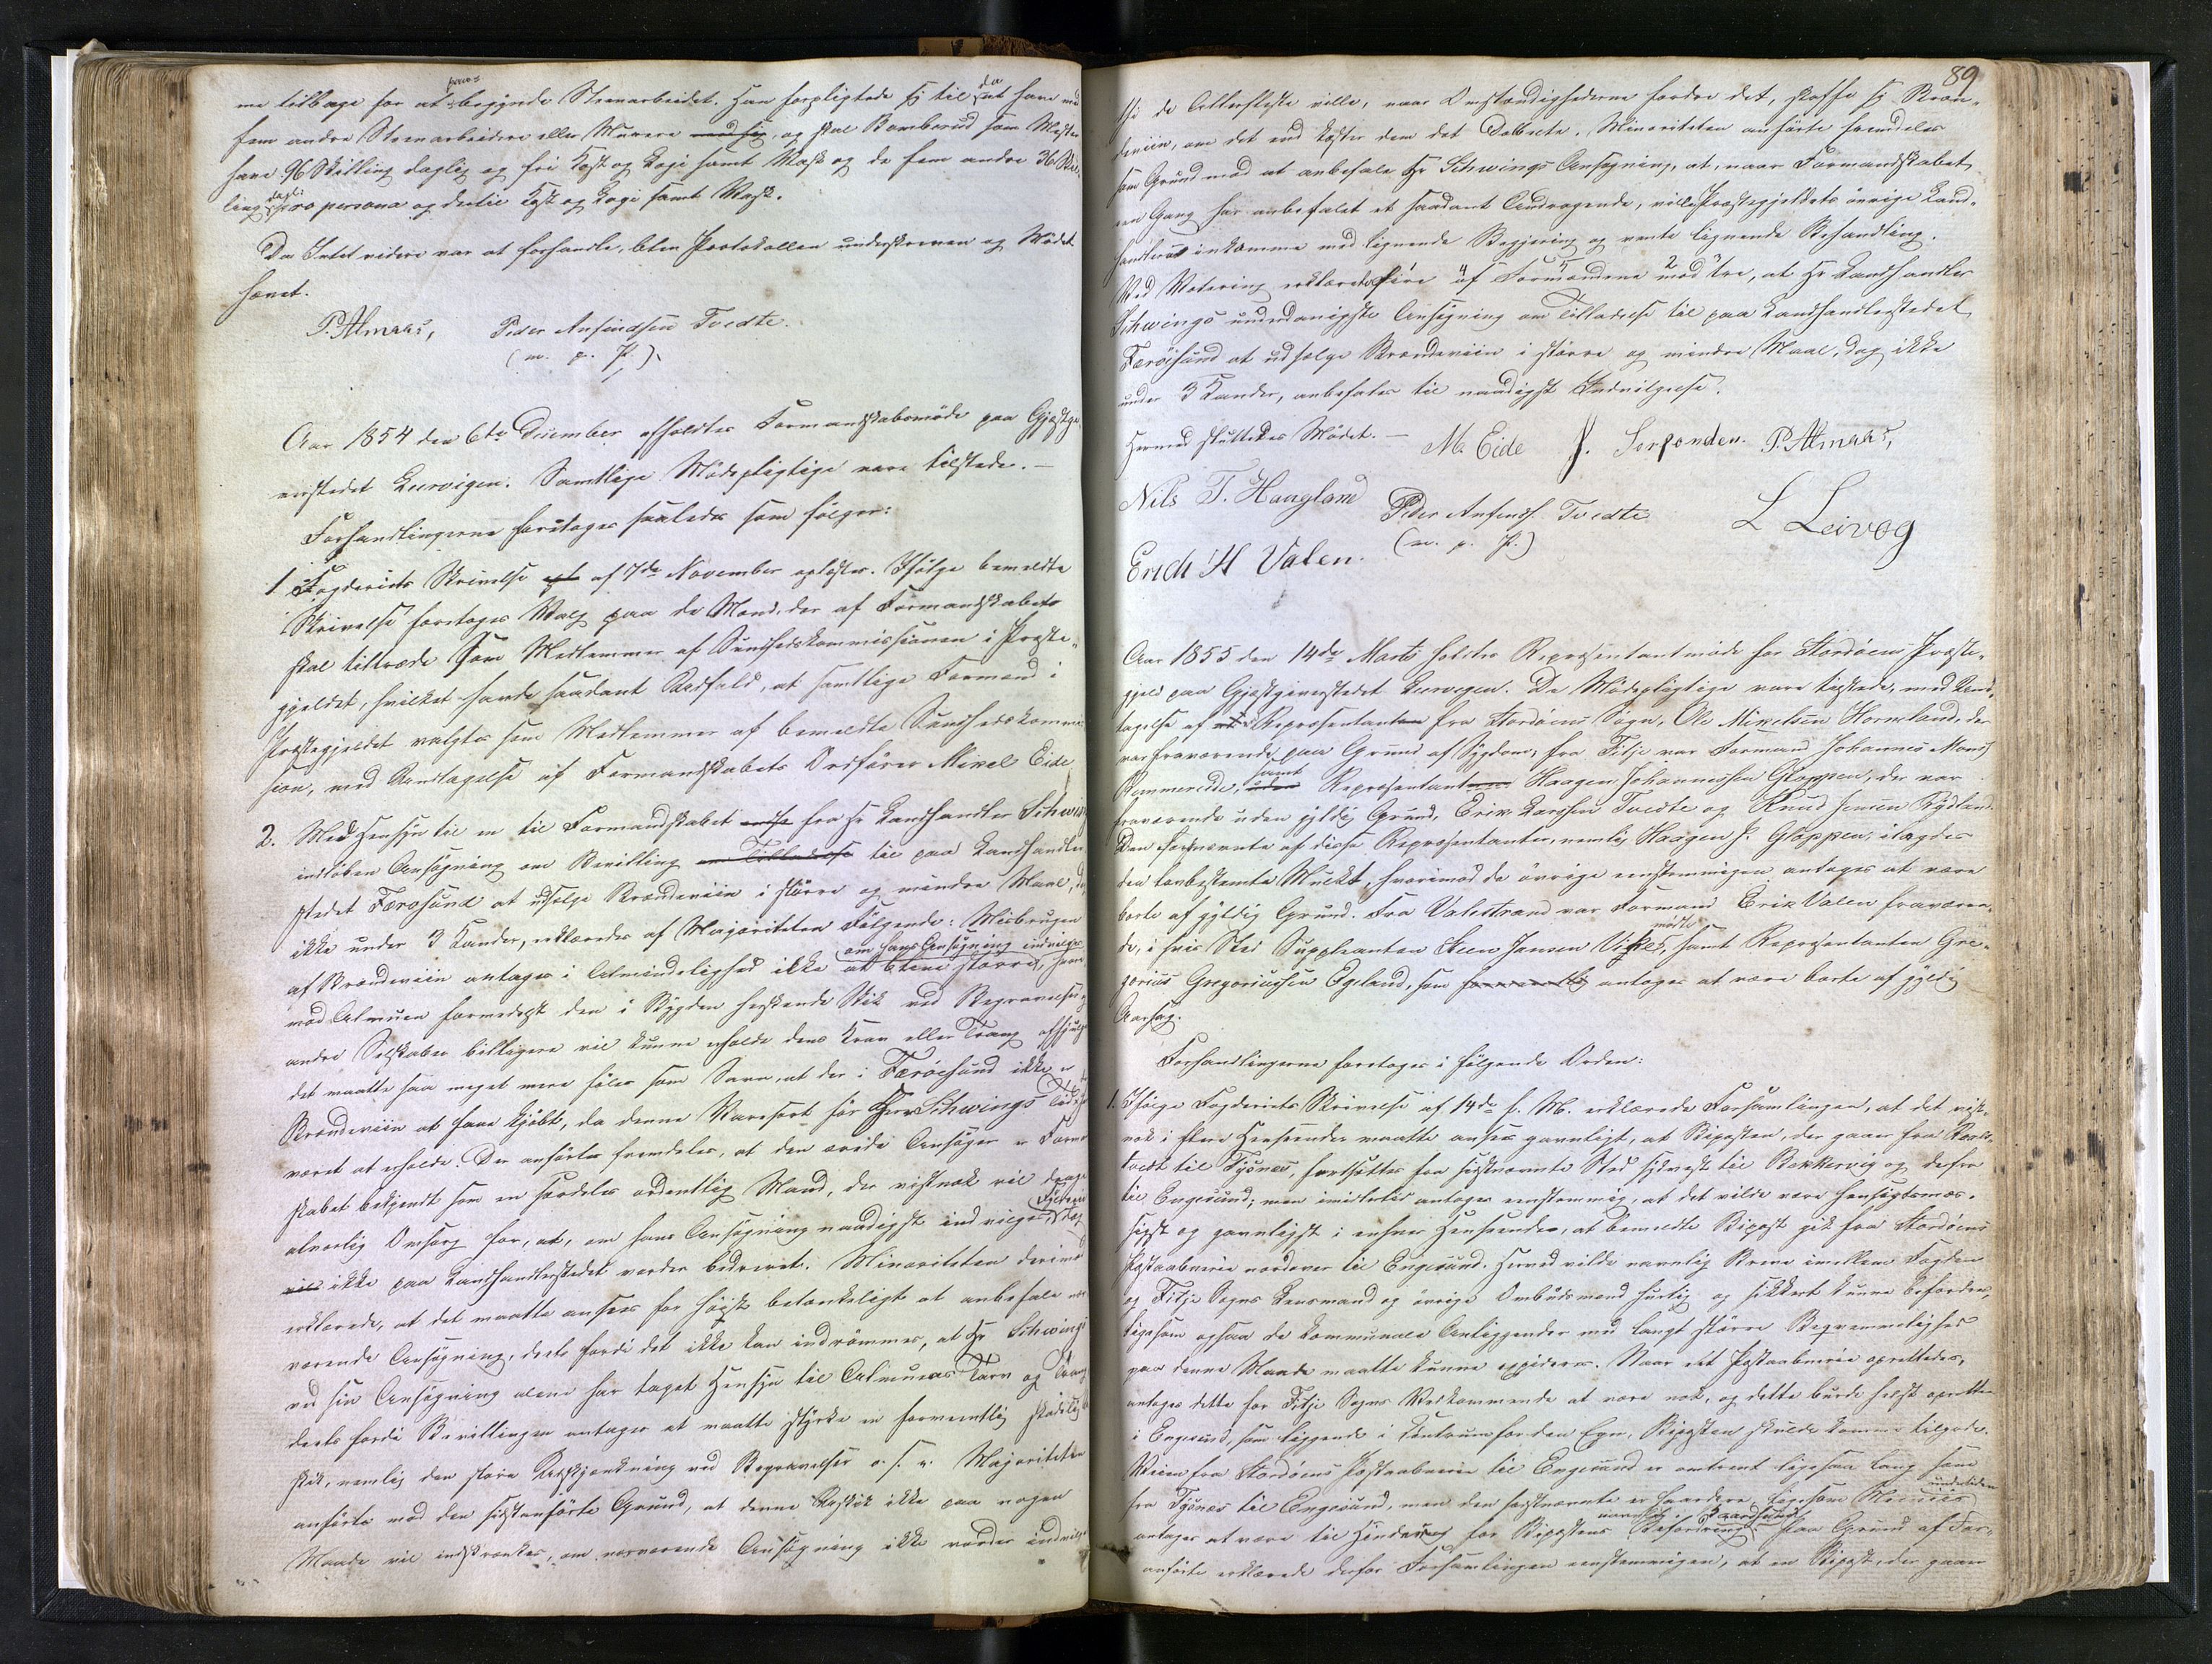 me tilbage for at paa begynde Steenarbeidet. Han forpligtede sig til da at have med
fem andre Steenarbeidere eller Murere med sig, og skal Bomberud som Mester
have 96 Skilling daglig og fri Kost og Logi samt Vask og de fem andre 36 Skil-
ling dagl: pro persona og dertil Kost og Logi samt Vask.
Da Intet videre var at forhandle, blev Protokollen underskreven og Mødet
hævet.
P. Almaas, Peder Anfindsen Tvedte.
(m. p. P.)
Aar 1854 den 6te December afholdtes Formandskabsmöde paa Gjæstgi-
verstedet Leervigen. Samtlige Mödepligtige vare tilstede. —
Forhandlingerne foretoges saaledes som fölger:
1. Fogderiets Skrivelse af 7de November oplæstes. Ifölge bemeldte
Skrivelse foretoges Valg paa de Mænd, der af Formandskabet
skal tiltræde som Medlemmer af Sundhedskommissionen i Præste-
gjeldet, hvilket havde saadant Udfald, at samtlige Formænd i
Præstegjeldet valgtes som Medlemmer af bemeldte Sundhedskommis-
sion, med Undtagelse af Formandskabets Ordförer Mikel Eide
2. Med Hensyn til en til Formandskabet fra Hr Landhandler Schwings
indlöben Ansögning om Bevilling om Tilladelse til paa Landhandler-
stedet Færösund at udsælge Brændeviin i större og mindre Maal, dog
ikke under 3 Kander, erklæredes af Majoriteten Fölgende: Misbrugen
af Brændeviin antages i Almindelighed ikke at blive större, om hans Ansögning indvilges,
mod Almuen formedelst den i Bygden herskende Skik ved Begravelser og
andre Selskaber billigere vil kunne erholde dens Krav eller Trang afhjulpen
det maatte saa meget mere föles som Savn, at der i Færöesund ikke er
Brændeviin at faae kjöbt, da denne Varesort för Herr Schwings Tid har
været at erholde. Der anförtes fremdeles, at den ærede Ansöger er Formand-
skabet bekjendt som en særdeles ordentlig Mand, der vistnok vil drage
alvorlig Omsorg for, at, om hans Ansögning naadigst indvilges,
vil ikke paa Landhandlerstedet vorder bedrevet. Minoriteten derimod
erklærede, at det maatte ansees for höist betænkeligt at anbefale nær-
værende Ansögning, deels fordi det ikke kan indrömmes, at Hr Schwings
ved sin Ansögning alene har taget Hensyn til Almuens Tarv og Trang
deels fordi Bevillingen antages at maatte styrke en formeentlig skadelig
Skik, nemlig den store Udskjænkning ved Begravelser o. s. v. Majoriteten
anförte mod den sidstanförte Grund, at denne Uskik ikke paa nogen
Maade vil indskrænkes, om nærværende Ansögning ikke vorder indvilget
89
thi de Allerfleste ville, naar Omstændighederne fordre det, skaffe sig Bræn-
deviin, om det end koster dem det Dobbelte. Minoriteten anförte fremdeles
som Grund mod at anbefale Hr Schwings Ansögning, at, naar Formandskabet
een Gang har anbefalet et saadant Andragende, ville Præstegjeldets övrige Land-
handlere inkomme med lignende Begjering og vente lignende Behandling.
Ved Votering erklærede fire 4 af Formændene mod tre, at Hr Landhandler
Schwings underdanigste Ansögning om Tilladelse til paa Landhandlerstedet
Færöesund at udsælge Brændeviin i större og mindre Maal, dog ikke
under 3 Kander, anbefales til naadigst Indvilgelse.
Hermed sluttedes Mödet. — M. Eide J. Sorponden. P. Almaas,
Nils T. Haugland Peder Anfinds. Tvedte L Leivog
(m. p. P.)
Erich H Valen.
Aar 1855 den 14de Marts holdtes Repræsentantmöde for Stordöens Præste-
gjeld paa Gjæstgiverstedet Leervigen. De Mödepligtige vare tilstede, med Und-
tagelse af Repræsentanten fra Stordöens Sogn, Ole Mikelsen Hornland, der
var fraværende paa Grund af Sygdom, fra Fitje var Formand Johannes Monss
Rommeredde, samt Repræsentanterne Haagen Johannessen Gloppen, der var
fraværende uden gyldig Grund, Erik Larssen Tvedte og Knud Jensen Rydland.
Den förstnævnte af disse Repræsentanter, nemlig Haagen J. Gloppen, ilagdes
den lovbestemte Mulkt, hvorimod de övrige eenstemmigen antoges at være
borte af gyldig Grund. Fra Valestrand var Formand Erik Valen fraværen-
de, i hvis Sted Suppleanten Steen Jensen Vikse mödte, samt Repræsentanten Gre-
gorius Gregoriussen Egeland, som antoges at være borte af gyldig
Aarsag.
Forhandlingerne foretoges i fölgende Orden:
1. Ifölge Fogderiets Skrivelse af 14de f. M. erklærede Forsamlingen, at det vist-
nok i flere Henseender maatte ansees gavnligt, at Biposten, der gaaer fra
tvedt til Tysnes, fortsættes fra sidstnævnte Sted til Bekkervig og derfra
til Engesund; men imidlertid antoges eenstemmig, at det vilde være hensigtsmæs-
sigst og gavnligst i enhver Henseende, at bemeldte Bipost gik fra Stordöens
Postaabnerie nordover til Engesund. Herved vilde navnlig Breve imellem Fogden
og Fitje Sogns Lensmand og övrige Ombudsmænd hurtig og sikkert kunne befordres,
ligesom ogsaa de kommunale Anliggender med langt större Bequemmelighed
paa denne Maade maatte kunne expideres. Naar eet Postaabnerie oprettedes,
antoges dette for Fitje Sogns Vedkommende at være nok, og dette burde helst oprettes
i Engesund, som liggende i Centrum for den Egn, Biposten skulde komme tilgode.
Veien fra Stordöens Postaabnerie til Engesund er omtrent ligesaa lang som
fra Tysnes til Engesund, men den sidstnævnte er haardere, ligesom undertiden
antages at være til Hinder for Bipostens Befordring. Paa Grund af For-
anförte erklærede derfor Forsamlingen eenstemmigen, at en Bipost, der gaaer